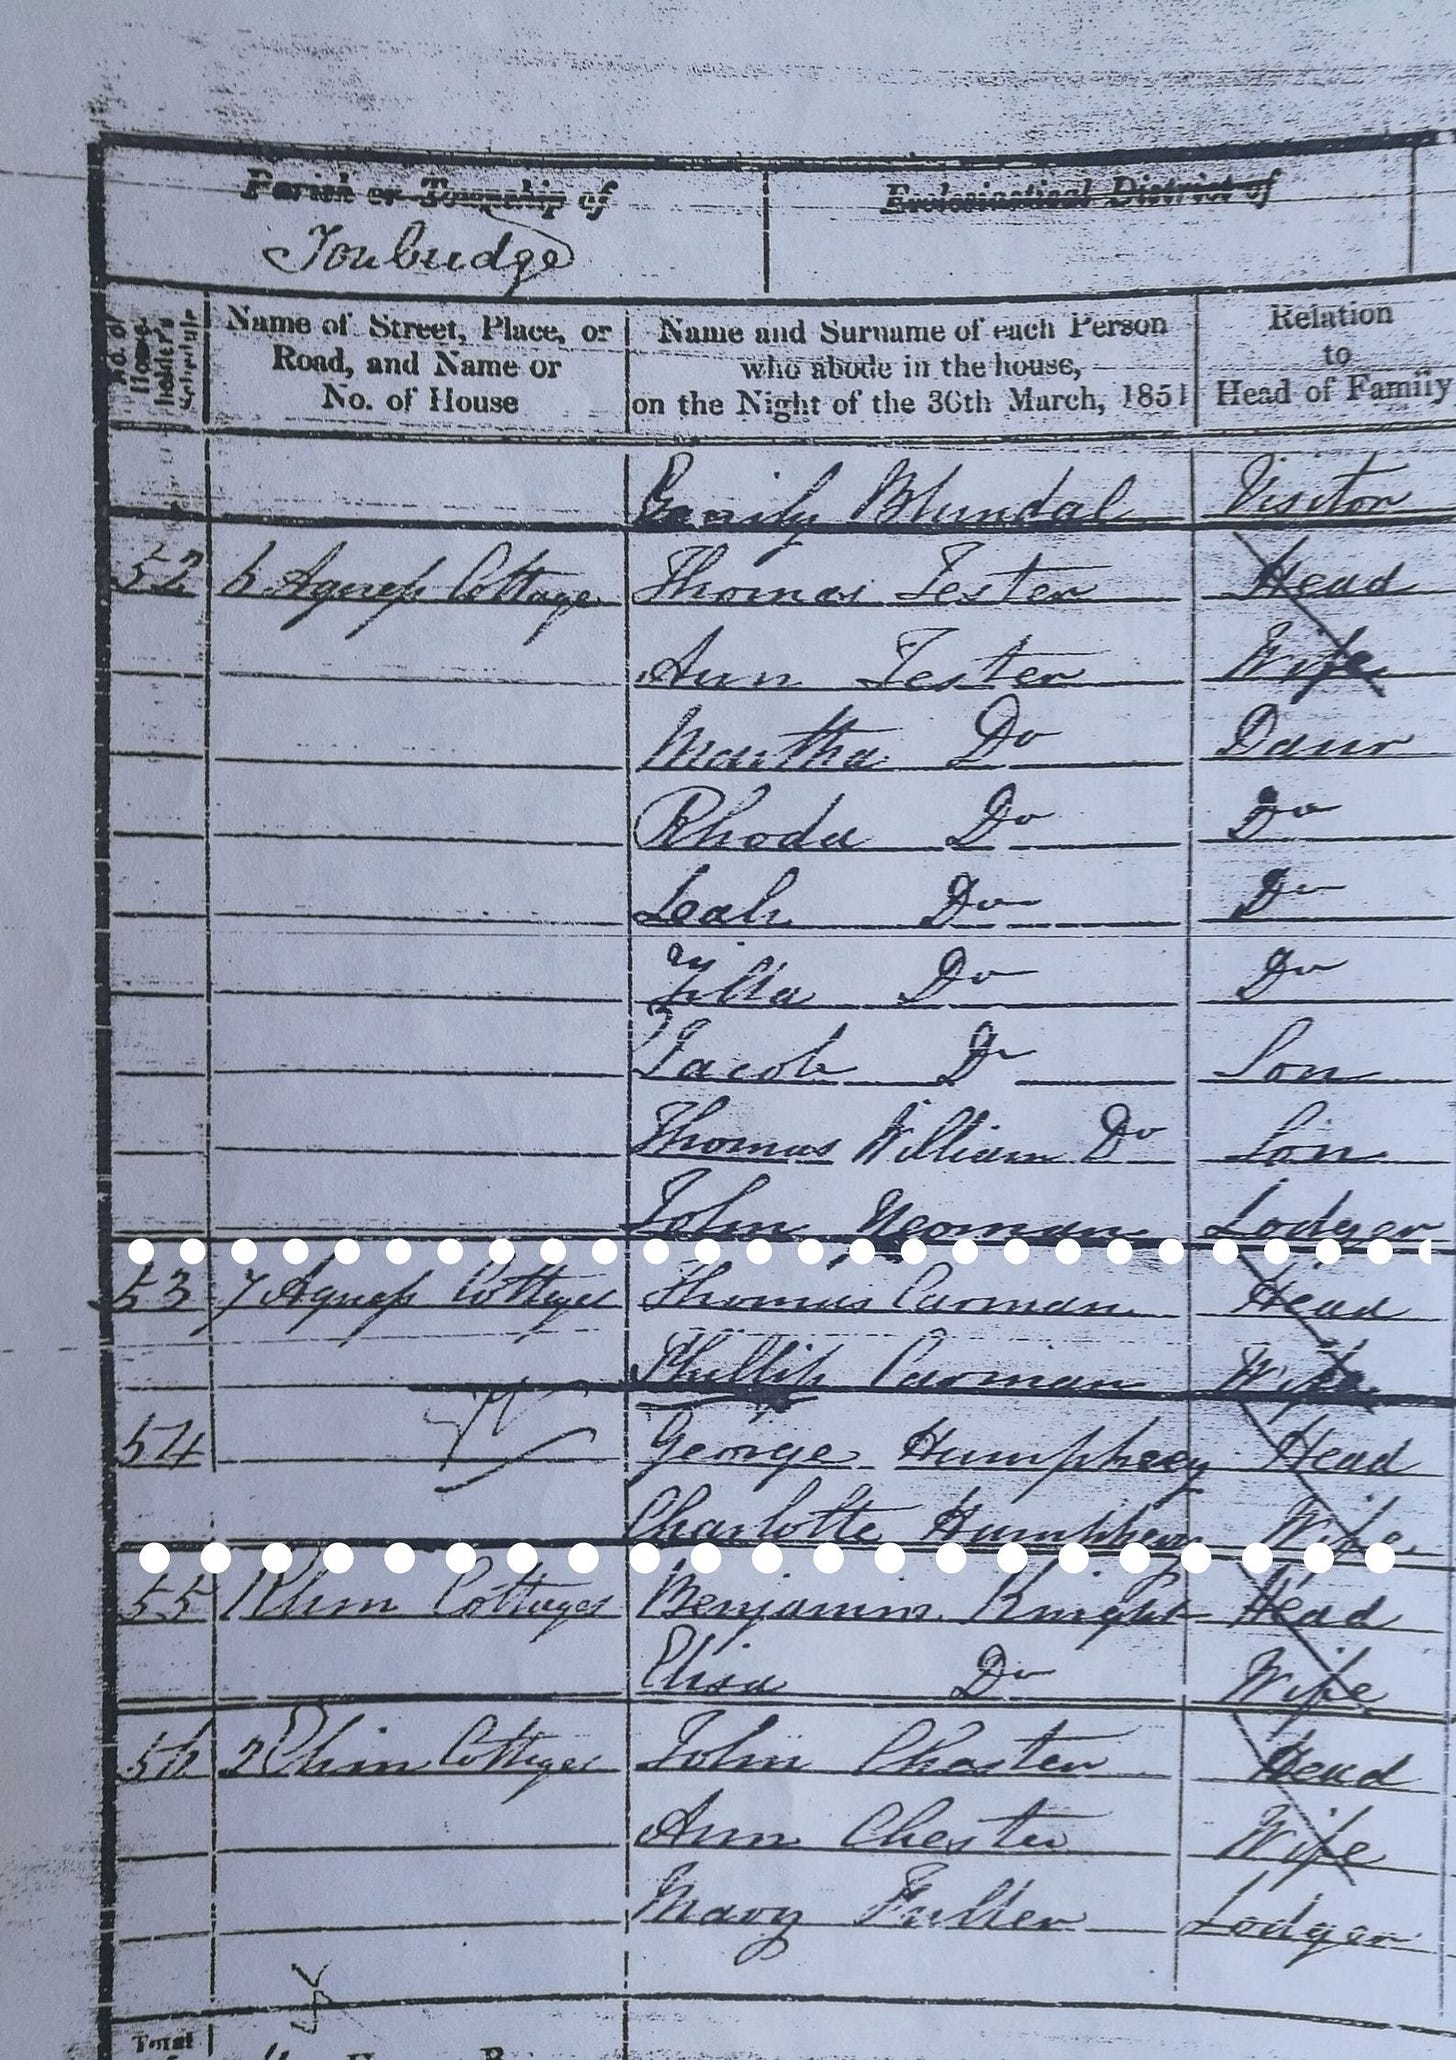 Parish or Township of
Ecclesiastical District of
Tonbudge
No. of House-holder's Schedule
Name of Street, Place, or Road, and Name or No. of House
Name and Surname of each Person who abode in the house, on the Night of the 30th March, 1851
Relation to Head of Family
Emily Blundal Visitor
52 6 Agness Cottage Thomas Tester Head
Ann Tester Wife
Martha Do Daur
Rhoda Do Do
Leah Do Do
Zilla Do Do
Jacob Do Son
Thomas William Do Son
John Yeoman Lodger
53 7 Agness Cottages Thomas Carman Head
Phillis Carman Wife
54 George Humphrey Head
Charlotte Humphrey Wife
55 Cottages Benjamin Knight Head
Elisa Do Wife
56 2 Cottages John Chaster Head
Ann Chester Wife
Mary Fuller Lodger
Total